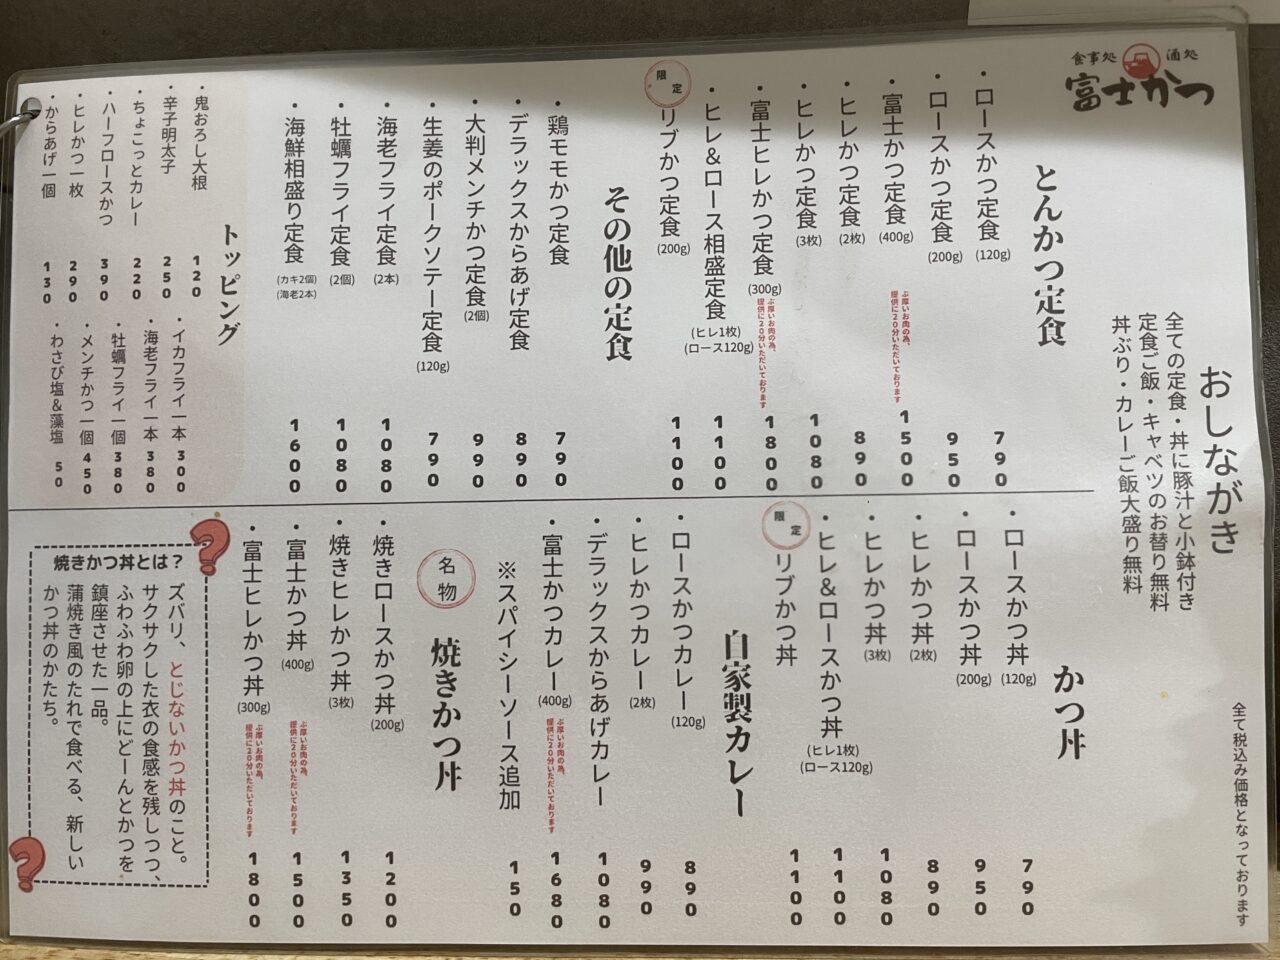 食事処 酒処
富士かつ
おしながき
全ての定食・丼に豚汁と小鉢付き
定食ご飯・キャベツのお替り無料
丼ぶり・カレーご飯大盛り無料
全て税込み価格となっております
とんかつ定食
・ロースかつ定食(120g) 790
・ロースかつ定食(200g) 950
・富士かつ定食(400g) 1500
ぶ厚いお肉の為、
提供に20分いただいております
・ヒレかつ定食(2枚) 890
・ヒレかつ定食(3枚) 1080
・富士ヒレかつ定食(300g) 1800
ぶ厚いお肉の為、
提供に20分いただいております
・ヒレ&ロース相盛定食 1100
(ヒレ1枚)
(ロース120g)
限定
リブかつ定食(200g) 1100
その他の定食
・鶏モモかつ定食 790
・デラックスからあげ定食 890
・大判メンチかつ定食(2個) 990
・生姜のポークソテー定食(120g) 790
・海老フライ定食(2本) 1080
・牡蠣フライ定食(2個) 1080
・海鮮相盛り定食 1600
(カキ2個)
(海老2本)
トッピング
・鬼おろし大根 120
・辛子明太子 250
・ちょこっとカレー 220
・ハーフロースかつ 390
・ヒレかつ一枚 290
・からあげ一個 130
・イカフライ一本 300
・海老フライ一本 380
・牡蠣フライ一個 380
・メンチかつ一個 450
・わさび塩&藻塩 50
かつ丼
・ロースかつ丼(120g) 790
・ロースかつ丼(200g) 950
・ヒレかつ丼(2枚) 890
・ヒレかつ丼(3枚) 1080
・ヒレ&ロースかつ丼 1100
(ヒレ1枚)
(ロース120g)
限定
リブかつ丼 1100
自家製カレー
・ロースかつカレー(120g) 890
・ヒレかつカレー(2枚) 990
・デラックスからあげカレー 1080
・富士かつカレー(400g) 1680
ぶ厚いお肉の為、
提供に20分いただいております
※スパイシーソース追加 150
名物
焼きかつ丼
・焼きロースかつ丼(200g) 1200
・焼きヒレかつ丼(3枚) 1350
・富士かつ丼(400g) 1500
ぶ厚いお肉の為、
提供に20分いただいております
・富士ヒレかつ丼(300g) 1800
ぶ厚いお肉の為、
提供に20分いただいております
焼きかつ丼とは？
ズバリ、とじないかつ丼のこと。
サクサクした衣の食感を残しつつ、
ふわふわ卵の上にどーんとかつを
鎮座させた一品。
蒲焼き風のたれで食べる、新しい
かつ丼のかたち。